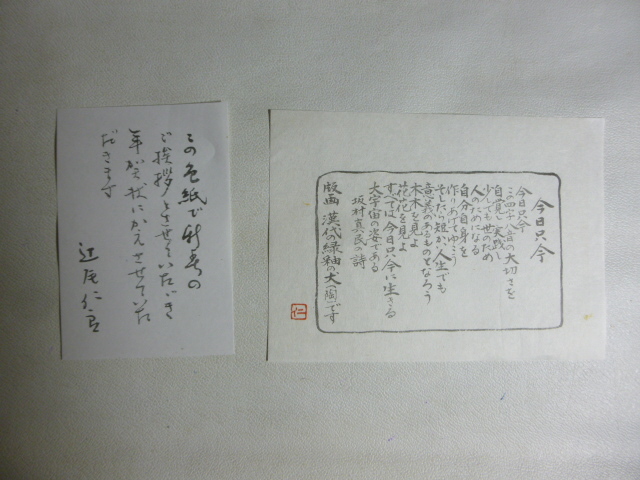 今日只今
今日只今
二四十八音の大切さを
自覚し実践し
少しでも世のため
人のためになる
自分自身を
作りあげてゆこう
そしたら短かい人生でも
意義あるものとなろう
木木を見よ
花花を見よ
すべては今日只今に生きる
大宇宙の姿である
坂村真民の詩
版画 漢代の緑釉の犬(陶)です
仁
この色紙で新春の
ご挨拶とさせていただき
年賀状にかえさせていた
だきます
辻尾仁郎